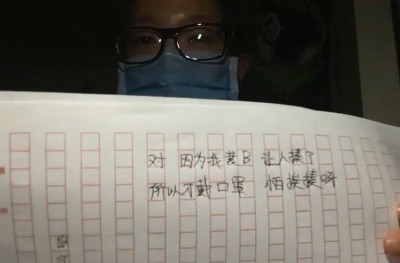 对 因为我装B 让人揍了
所以才戴口罩 怕挨揍呀